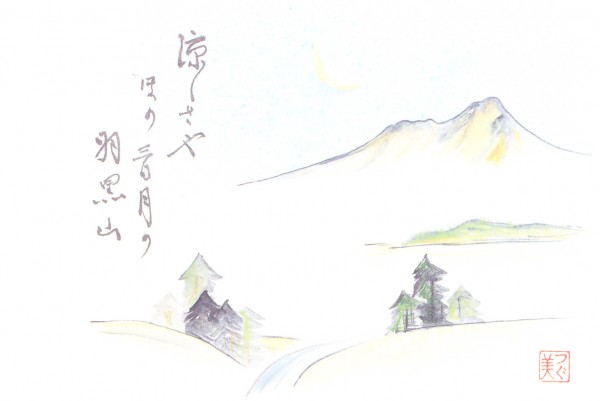 涼しさや
ほの三日月の
羽黒山
つぐ美